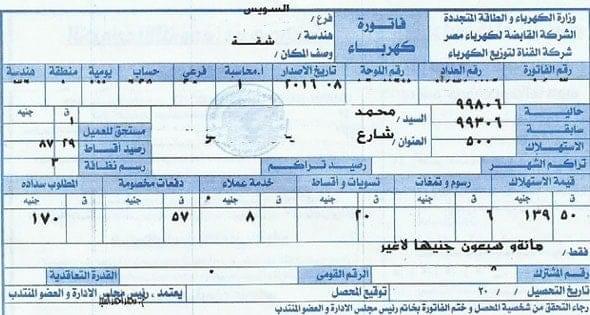 السويس
وزارة الكهرباء و الطاقة المتجددة
الشركة القابضة لكهرباء مصر
شركة القناة لتوزيع الكهرباء
فاتورة كهرباء
فرع /
هندسة /
وصف المكان / شقة
رقم الفاتورة رقم العداد رقم اللوحة تاريخ الاصدار أ.محاسبة فرعى حساب يومية منطقة هندسة
٢٠١٦ ٠٨ ١
حالية ٩٩٨٠٦
سابقة ٩٩٣٠٦
الاستهلاك ٥٠٠
السيد / محمد
العنوان / شارع
ق جنيه
مستحق للعميل ١
رصيد أقساط ٢٩ ٨٧
رسم نظافة ٣
تراكم الشهر رصيد تراكم
قيمة الاستهلاك رسوم و تمغات تسويات و أقساط خدمة عملاء دفعات مخصومة المطلوب سداده
ق جنيه ق جنيه ق جنيه ق جنيه ق جنيه ق جنيه
٥٠ ١٣٩ ٦ ٢٠ ٨ ٥٧ ١٧٠
فقط / مائة و سبعون جنيها لاغير
رقم المشترك ٨ الرقم القومى ٠ القدرة التعاقدية
تاريخ التحصيل / / ٢٠ توقيع المحصل يعتمد ، رئيس مجلس الادارة و العضو المنتدب
رجاء التحقق من شخصية المحصل و ختم الفاتورة بخاتم رئيس مجلس الادارة و العضو المنتدب